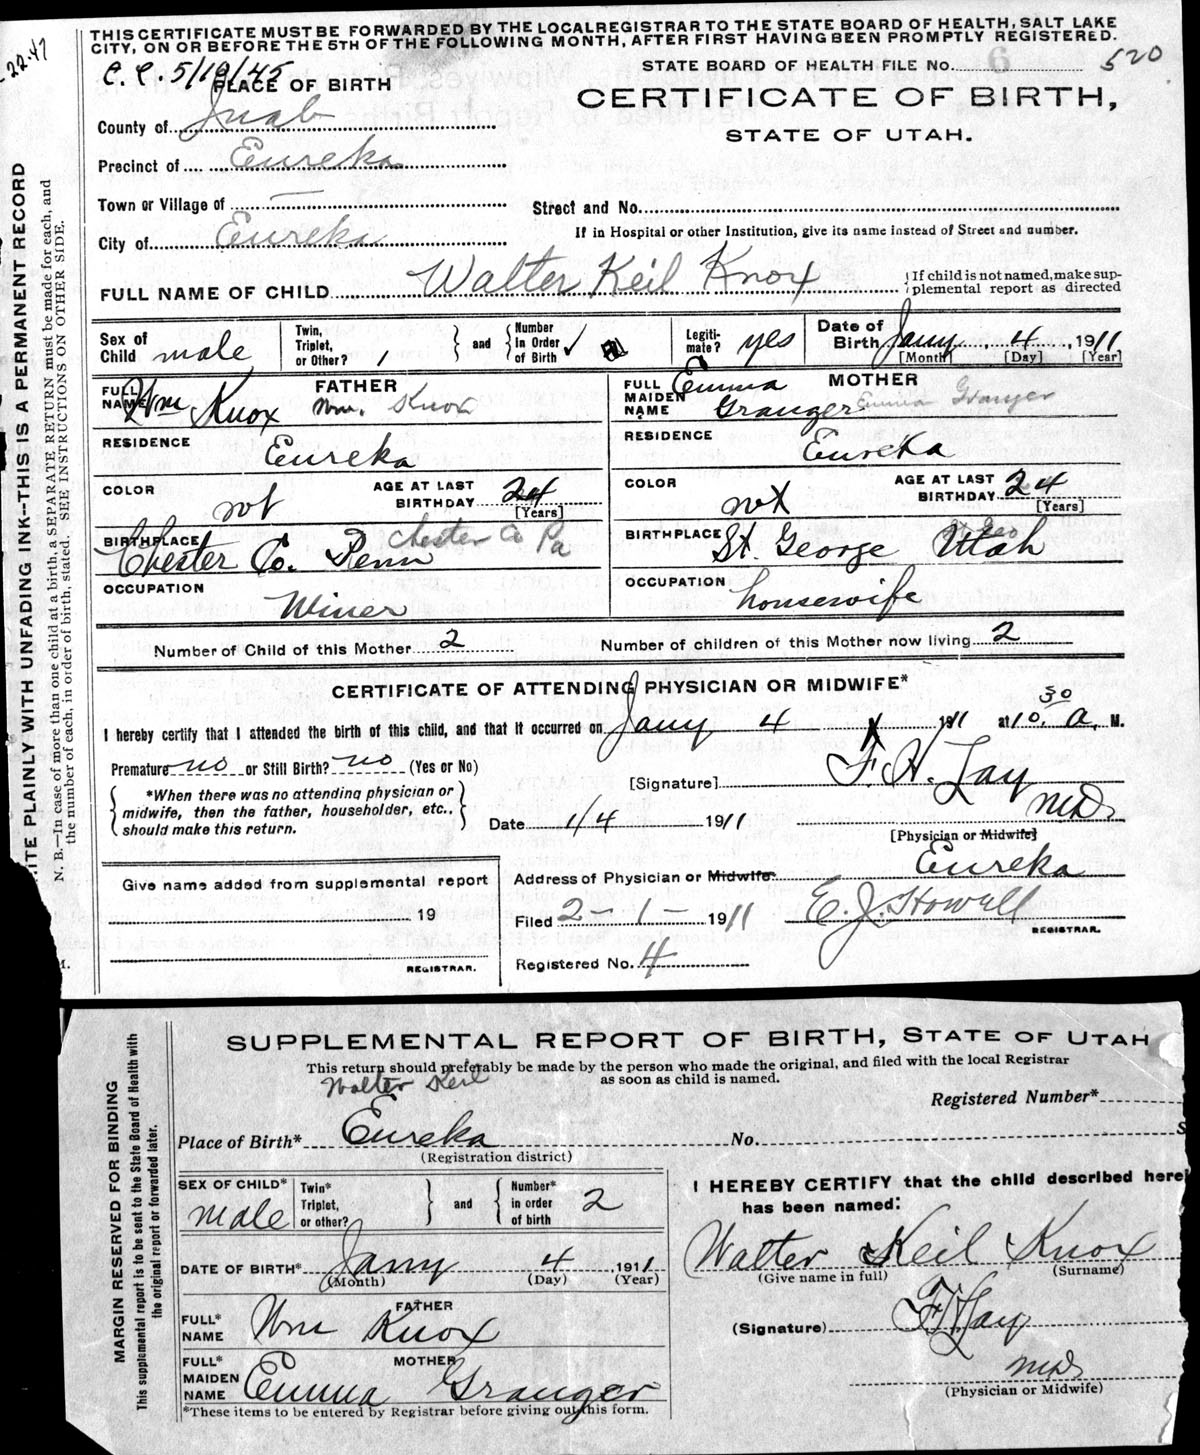 THIS CERTIFICATE MUST BE FORWARDED BY THE LOCAL REGISTRAR TO THE STATE BOARD OF HEALTH, SALT LAKE
CITY, ON OR BEFORE THE 5TH OF THE FOLLOWING MONTH, AFTER FIRST HAVING BEEN PROMPTLY REGISTERED.
22-47
C.C. 5/19/45
STATE BOARD OF HEALTH FILE No. 520
PLACE OF BIRTH
CERTIFICATE OF BIRTH,
STATE OF UTAH.
County of Juab
Precinct of Eureka
Town or Village of —
Street and No.
City of Eureka
If in Hospital or other Institution, give its name instead of Street and number.
FULL NAME OF CHILD Walter Keil Knox
If child is not named, make sup-
plemental report as directed
Sex of Child male
Twin, Triplet, or Other? 1
and
Number In Order of Birth ✓
Legiti-mate? yes
Date of Birth Jany 4 1911
[Month] [Day] [Year]
FATHER
FULL NAME Wm Knox Wm. Knox
MOTHER
FULL MAIDEN NAME Emma Granger Emma Granger
RESIDENCE Eureka
RESIDENCE Eureka
COLOR wt AGE AT LAST BIRTHDAY 24
[Years]
COLOR wt AGE AT LAST BIRTHDAY 24
[Years]
BIRTHPLACE Chester Co. Penn Chester Co Pa
BIRTHPLACE St. George Utah St Geo
OCCUPATION Miner
OCCUPATION housewife
Number of Child of this Mother 2 Number of children of this Mother now living 2
CERTIFICATE OF ATTENDING PHYSICIAN OR MIDWIFE*
I hereby certify that I attended the birth of this child, and that it occurred on Jany 4 1911 at 10.30 a. M.
Premature no or Still Birth? no (Yes or No)
[Signature] F. H. Lay MD
*When there was no attending physician or
midwife, then the father, householder, etc.,
should make this return.
Date 1/4 1911
[Physician or Midwife]
Give name added from supplemental report
19
REGISTRAR.
Address of Physician or Midwife Eureka
Filed 2-1-1911 E. J. Howell
REGISTRAR.
Registered No. 4
WRITE PLAINLY WITH UNFADING INK--THIS IS A PERMANENT RECORD
N. B.—In case of more than one child at a birth, a SEPARATE RETURN must be made for each, and
the number of each, in order of birth, stated. SEE INSTRUCTIONS ON OTHER SIDE.
SUPPLEMENTAL REPORT OF BIRTH, STATE OF UTAH
This return should preferably be made by the person who made the original, and filed with the local Registrar
as soon as child is named.
Walter Keil
Registered Number*
Place of Birth* Eureka No. S
(Registration district)
SEX OF CHILD* male
Twin* Triplet, or other?
and
Number* in order of birth 2
I HEREBY CERTIFY that the child described here
has been named:
Walter Keil Knox
(Give name in full) (Surname)
DATE OF BIRTH* Jany 4 1911
(Month) (Day) (Year)
FATHER
FULL* NAME Wm Knox
(Signature) F H Lay
MD
(Physician or Midwife)
MOTHER
FULL* MAIDEN NAME Emma Granger
*These items to be entered by Registrar before giving out this form.
MARGIN RESERVED FOR BINDING
This supplemental report is to be sent to the State Board of Health with
the original report or forwarded later.